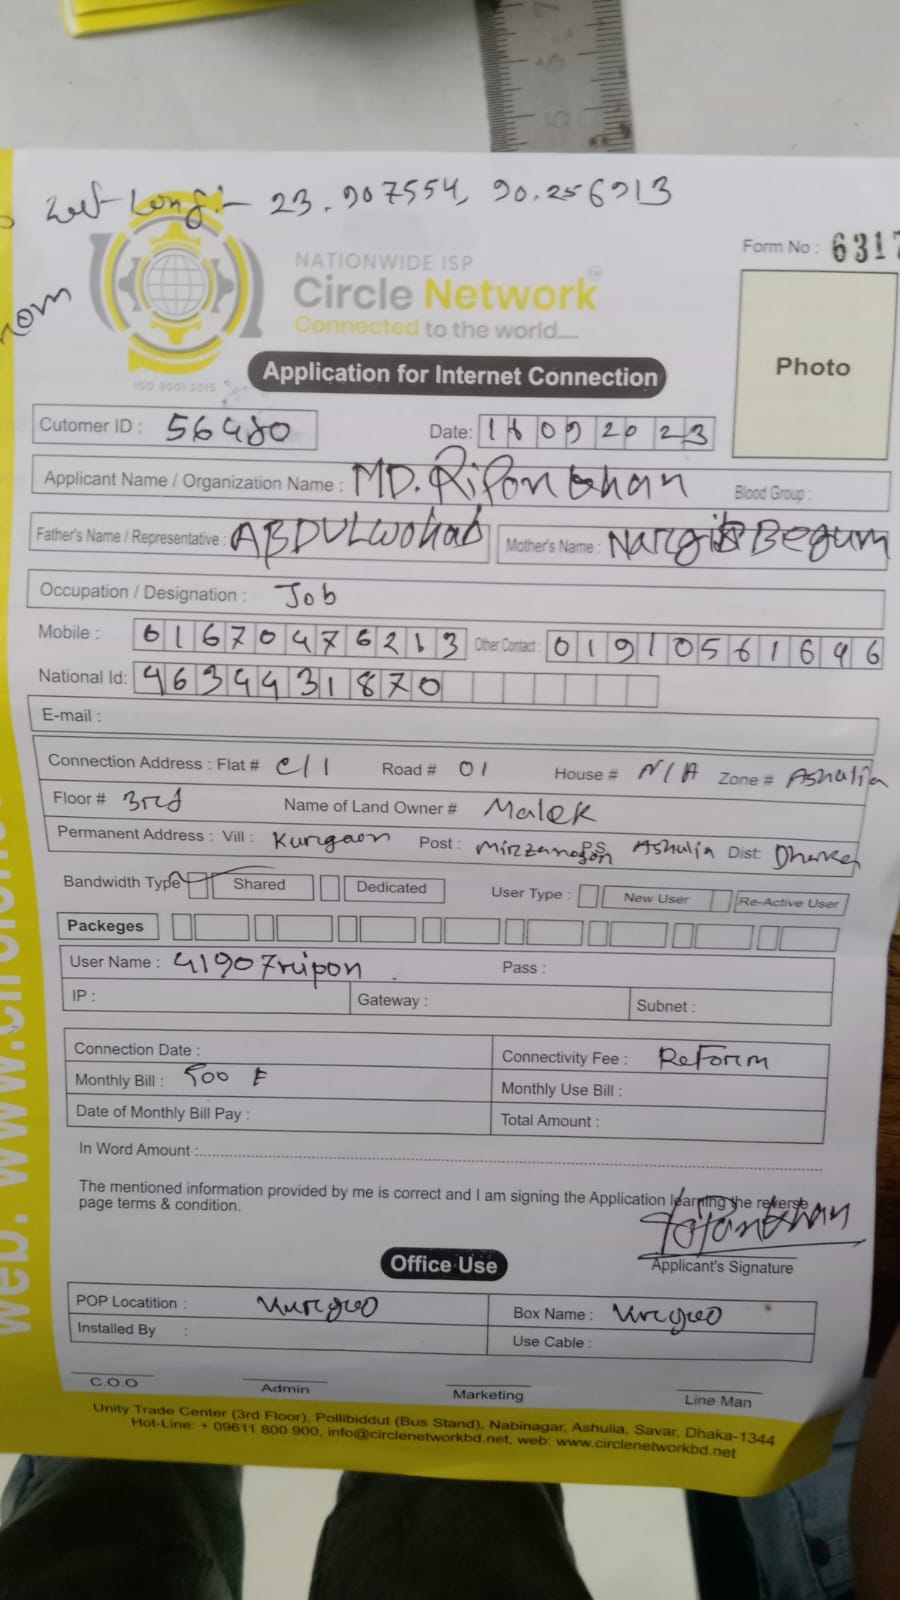 Lat-Long:- 23.907554, 90.256913
Form No : 6317
NATIONWIDE ISP
Circle Network
Connected to the world....
ISO 9001:2015
Application for Internet Connection
Photo
Cutomer ID : 56480 Date: 18092023
Applicant Name / Organization Name : MD. Ripon khan Blood Group :
Father's Name / Representative : ABDULWohab Mother's Name : Nargis Begum
Occupation / Designation : Job
Mobile : 01670476213 Other Contact : 01910561696
National Id: 4634431870
E-mail :
Connection Address : Flat # C/1 Road # 01 House # N/A Zone # Ashulia
Floor # 3rd Name of Land Owner # Malek
Permanent Address : Vill : Kurgaon Post : Mirzanagon P.S Ashulia Dist: Dhaka
Bandwidth Type Shared Dedicated User Type : New User Re-Active User
Packeges
User Name : 41907ripon Pass :
IP : Gateway : Subnet :
Connection Date : Connectivity Fee : ReForm
Monthly Bill : 500 Monthly Use Bill :
Date of Monthly Bill Pay : Total Amount :
In Word Amount :
The mentioned information provided by me is correct and I am signing the Application learning the reverse
page terms & condition.
Applicant's Signature
Office Use
POP Locatition : Box Name :
Installed By : Use Cable :
C.O.O Admin Marketing Line Man
Unity Trade Center (3rd Floor), Pollibiddut (Bus Stand), Nabinagar, Ashulia, Savar, Dhaka-1344
Hot-Line: + 09611 800 900, info@circlenetworkbd.net, web: www.circlenetworkbd.net